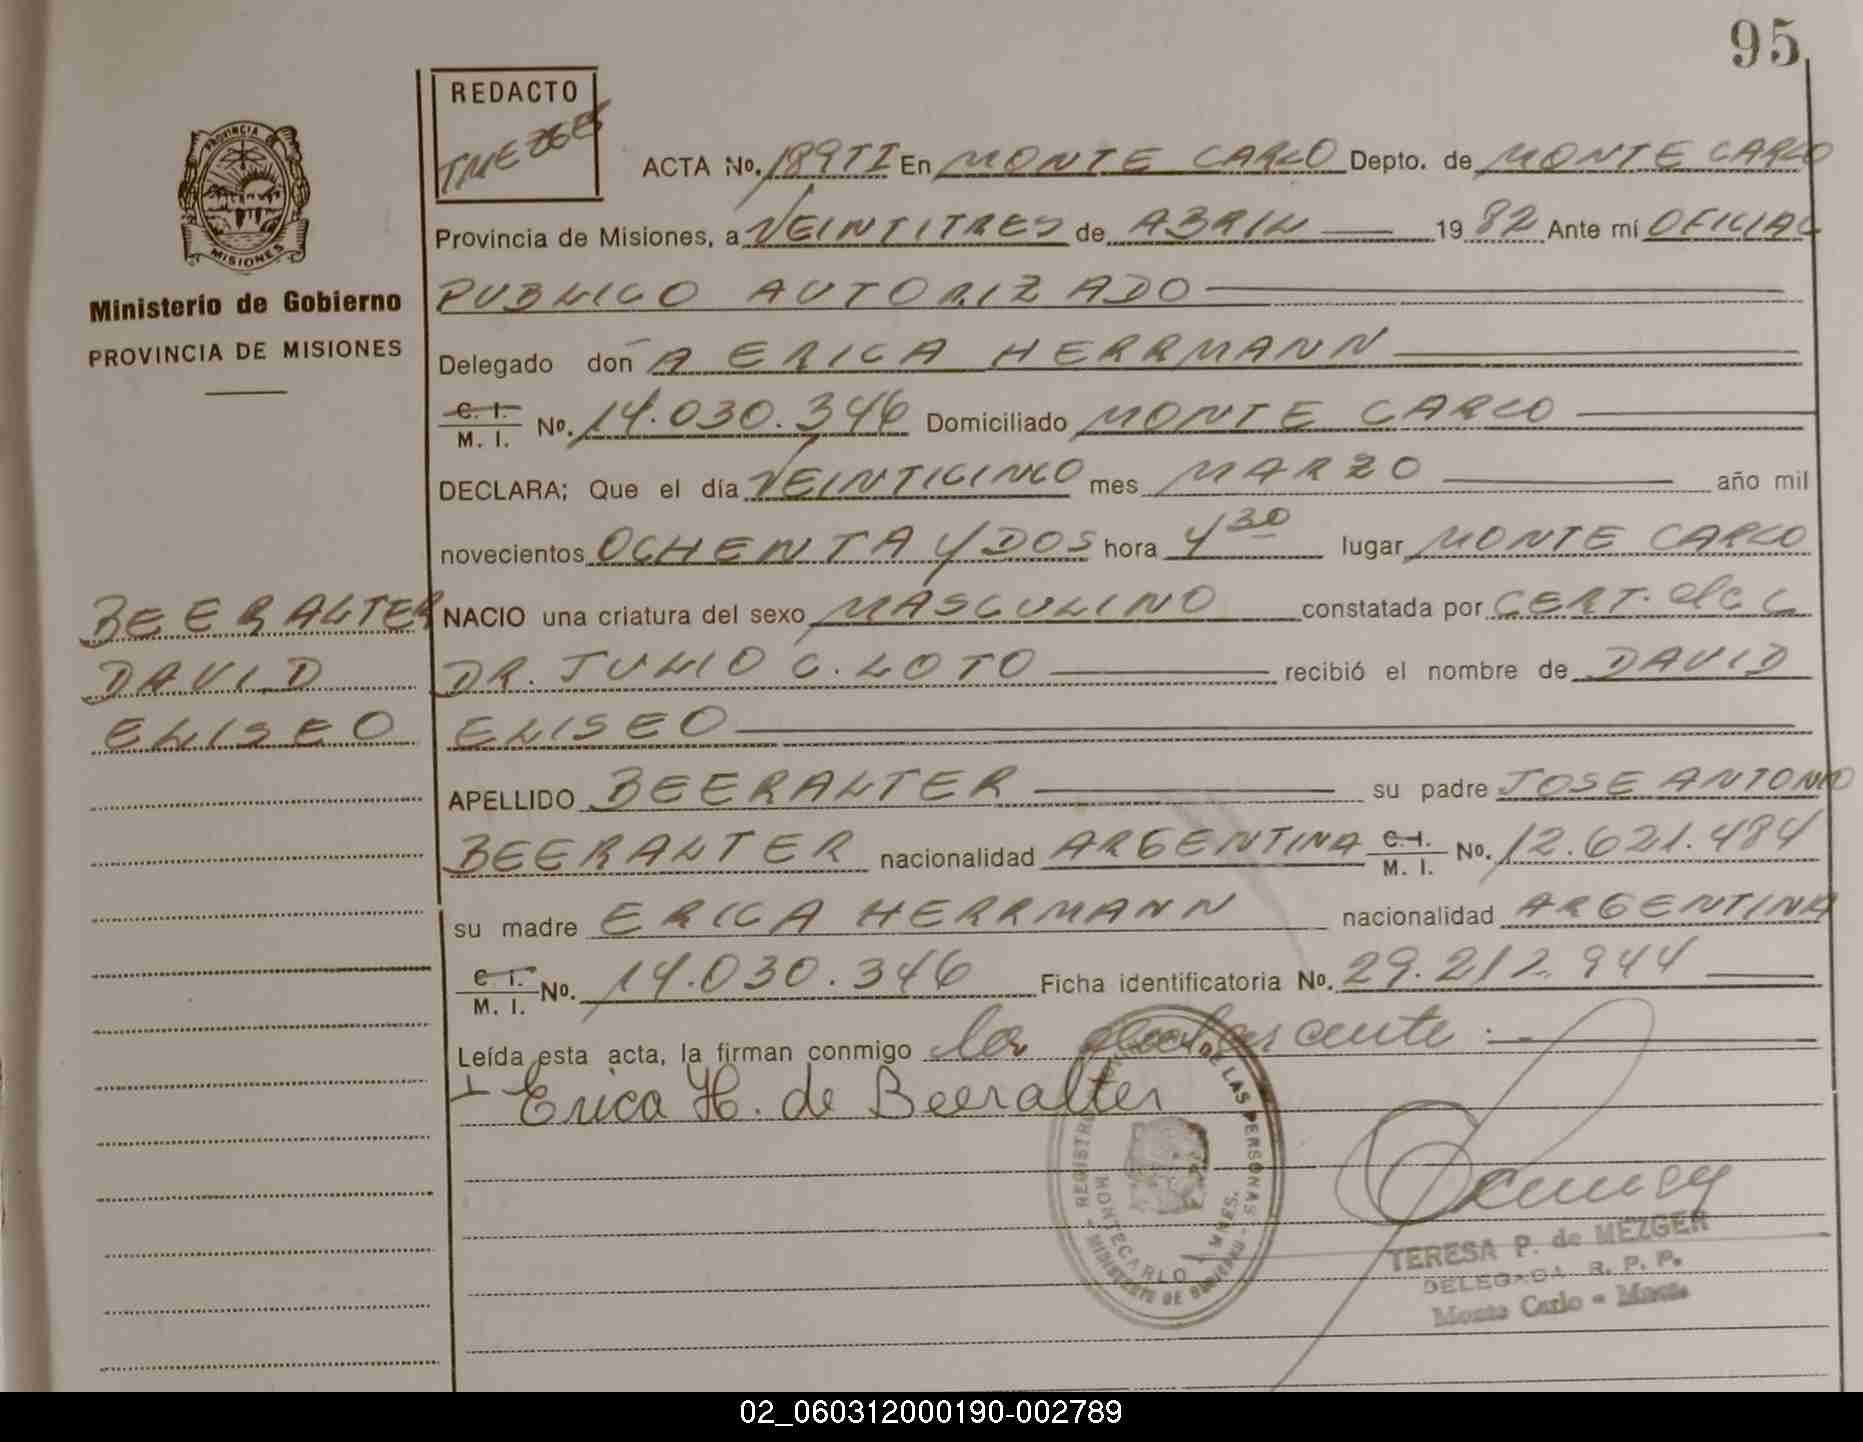 95
REDACTO
TMEZGER
PROVINCIA DE
MISIONES
Ministerio de Gobierno
PROVINCIA DE MISIONES
ACTA No. 189TI En MONTE CARLO Depto. de MONTE CARLO
Provincia de Misiones, a VEINTITRES de ABRIL 1982 Ante mí OFICIAL
PUBLICO AUTORIZADO
Delegado don A ERICA HERRMANN
C. I. / M. I. No. 14.030.346 Domiciliado MONTE CARLO
DECLARA; Que el día VEINTICINCO mes MARZO año mil
novecientos OCHENTA Y DOS hora 4 30 lugar MONTE CARLO
NACIO una criatura del sexo MASCULINO constatada por CERT. del
DR. JULIO C. LOTO recibió el nombre de DAVID
ELISEO
BEERALTER
DAVID
ELISEO
APELLIDO BEERALTER su padre JOSE ANTONIO
BEERALTER nacionalidad ARGENTINA C. I. / M. I. No. 12.621.484
su madre ERICA HERRMANN nacionalidad ARGENTINA
C. I. / M. I. No. 14.030.346 Ficha identificatoria No. 29.212.944
Leída esta acta, la firman conmigo la declarante:
Erica H. de Beeralter
REGISTRO DE LAS PERSONAS
MONTECARLO MNES.
MINISTERIO DE GOBIERNO
TERESA P. de MEZGER
DELEGADA R. P. P.
Monte Carlo - Mnes
02_060312000190-002789